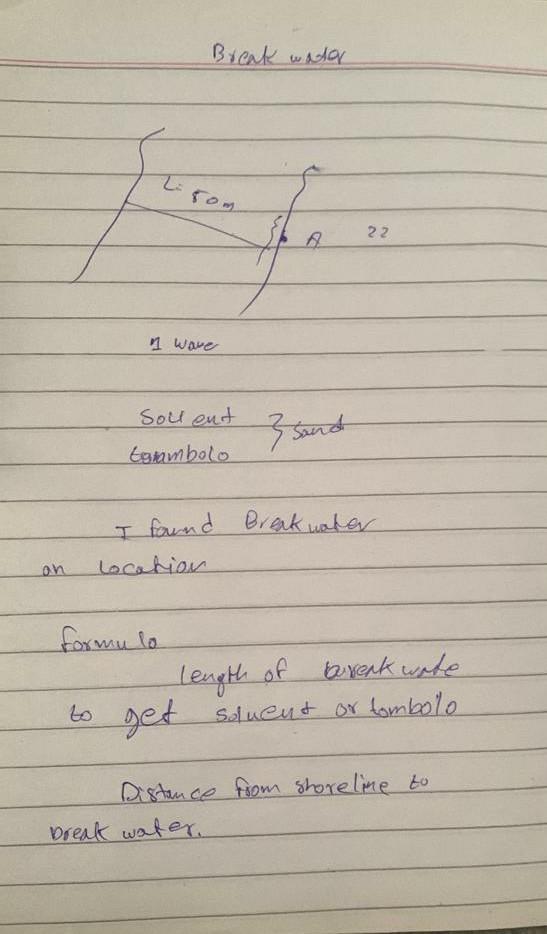 Break water
L= 50m
A 22
1 wave
Sollent
tombolo } Sand
I found Breakwater
on Location
formulo
length of breakwate
to get soluent or tombolo
Distance from shoreline to
break water.